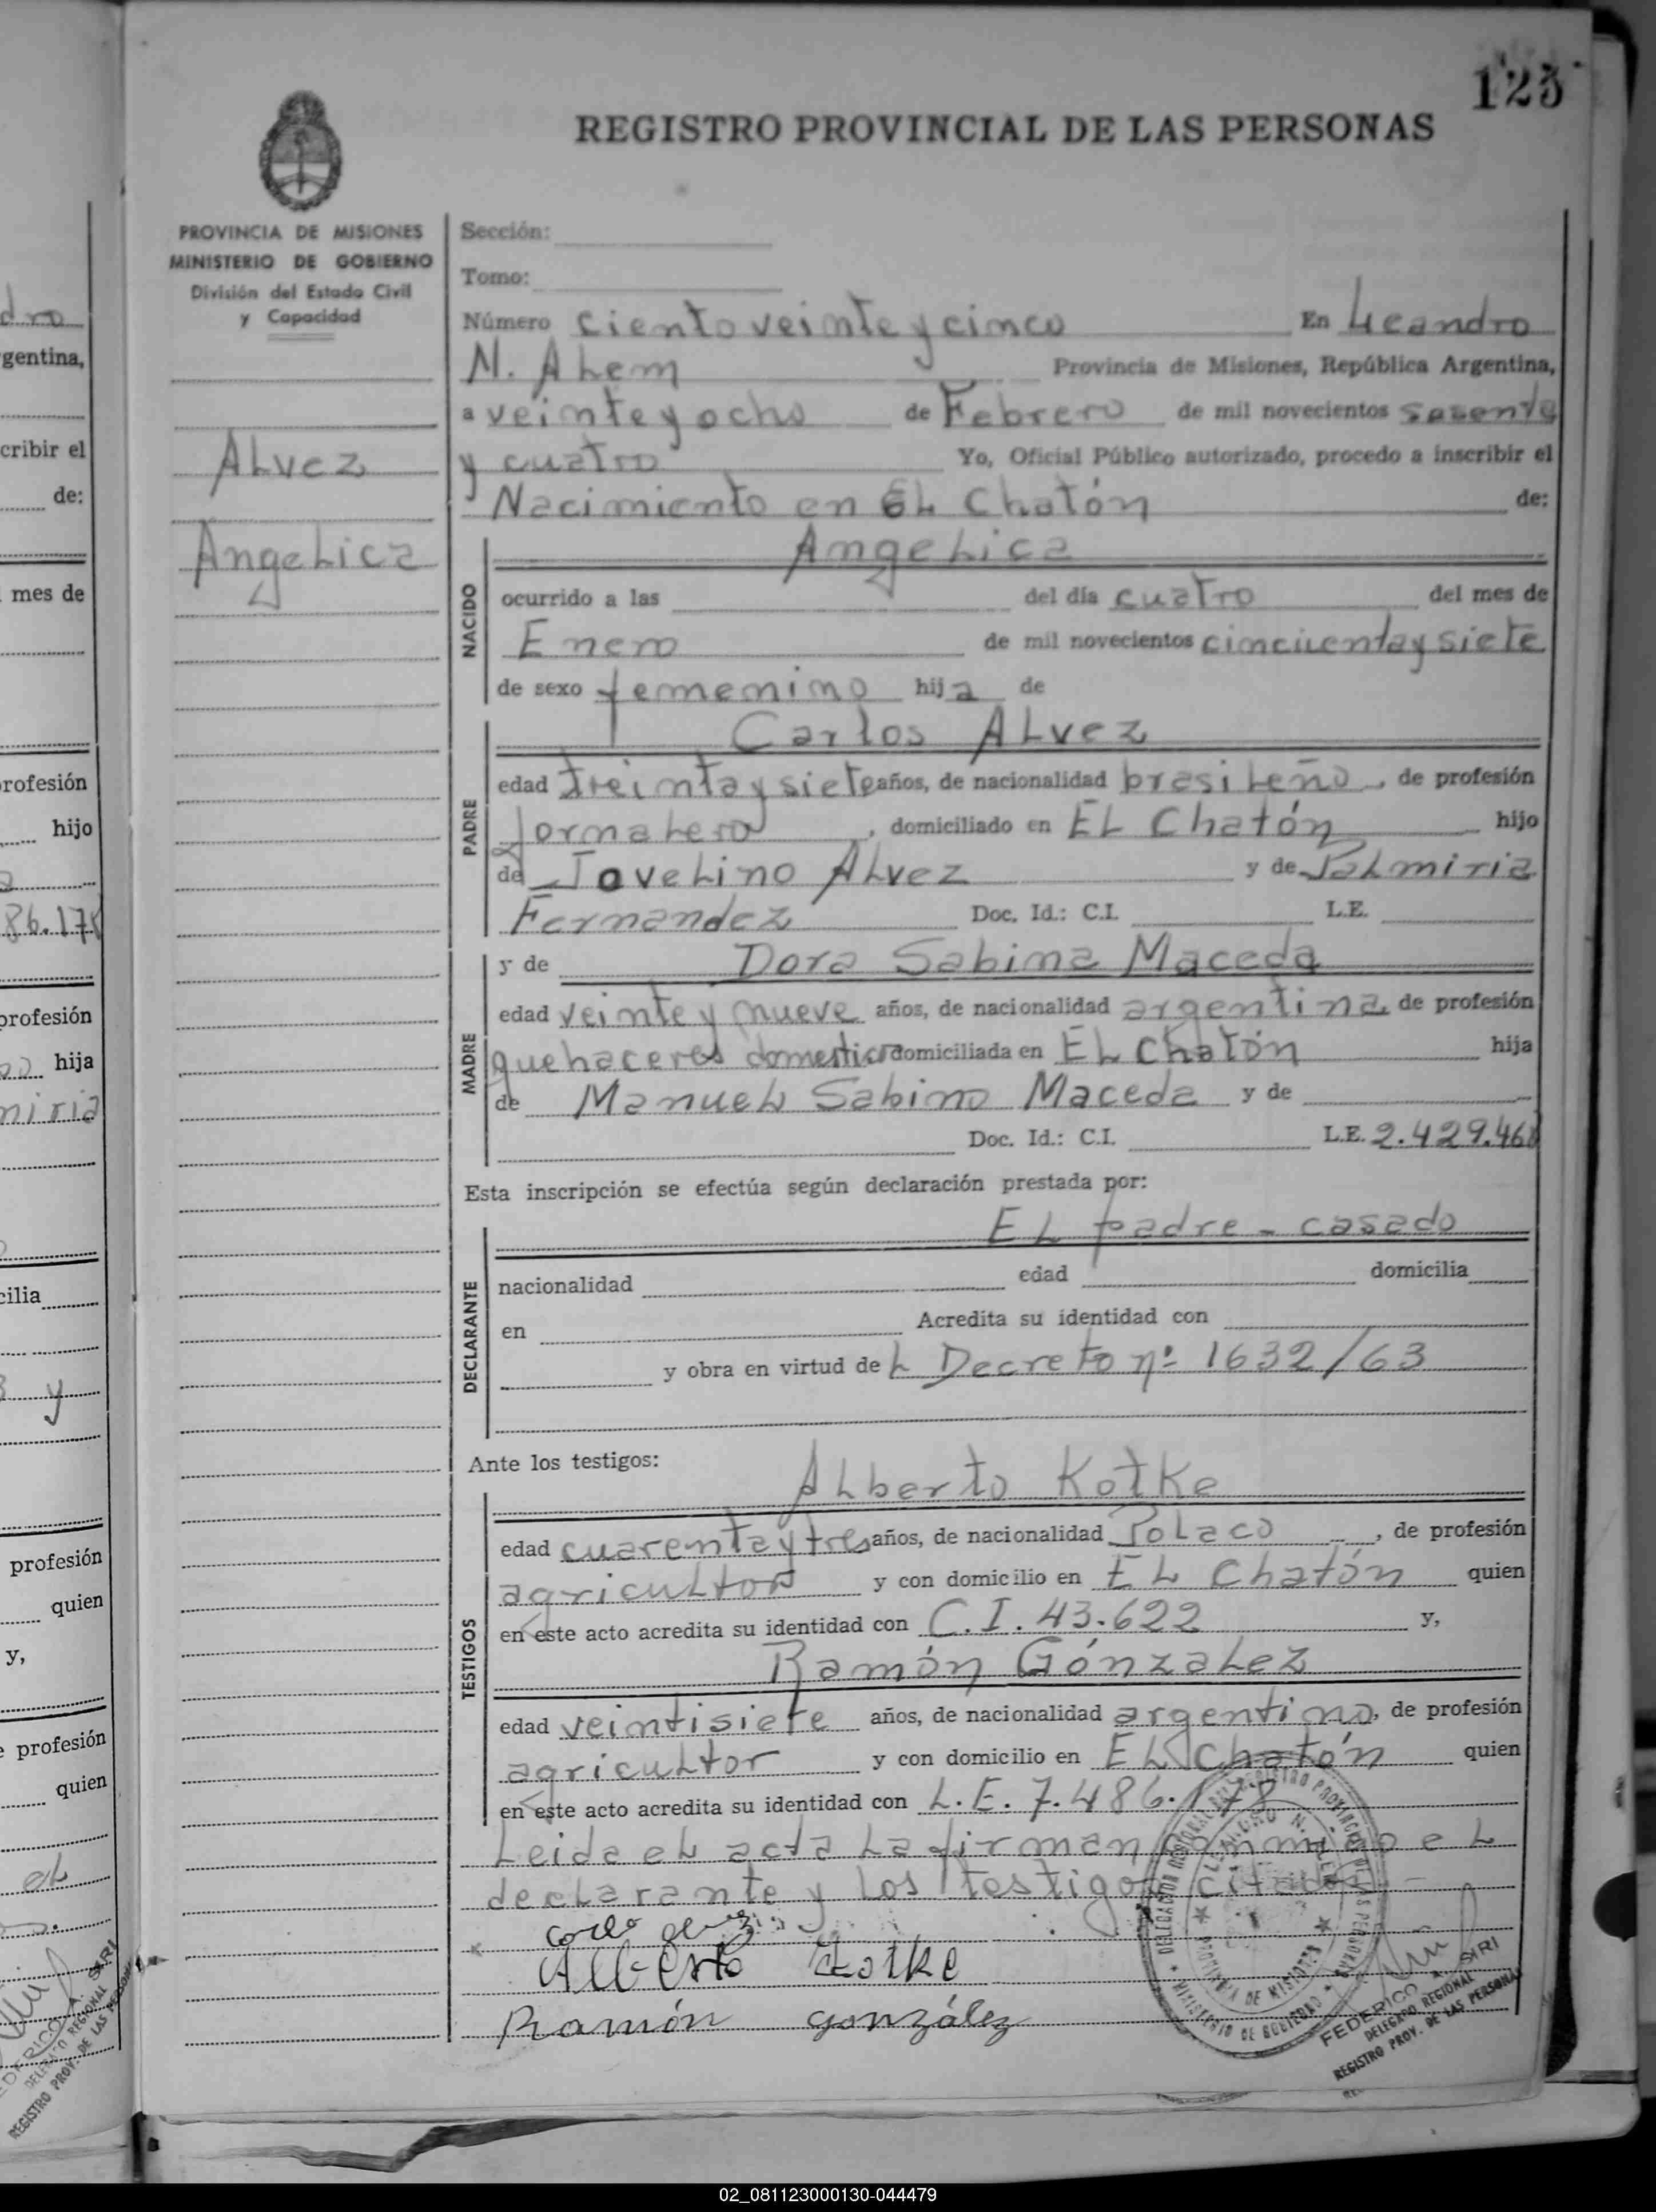 125
REGISTRO PROVINCIAL DE LAS PERSONAS
PROVINCIA DE MISIONES
MINISTERIO DE GOBIERNO
División del Estado Civil
y Capacidad
Alvez
Angelica
Sección:
Tomo:
Número ciento veinte y cinco En Leandro
N. Alem Provincia de Misiones, República Argentina,
a veinte y ocho de Febrero de mil novecientos sesenta
y cuatro Yo, Oficial Público autorizado, procedo a inscribir el
Nacimiento en El Chatón de:
Angelica
NACIDO
ocurrido a las del día cuatro del mes de
Enero de mil novecientos cincuenta y siete
de sexo femenino hija de
Carlos Alvez
PADRE
edad treinta y siete años, de nacionalidad brasileño, de profesión
Jornalero, domiciliado en El Chatón hijo
de Jovelino Alvez y de Palmiria
Fernandez Doc. Id.: C.I. L.E.
MADRE
y de Dora Sabina Maceda
edad veinte y nueve años, de nacionalidad argentina de profesión
quehaceres domestico domiciliada en El Chatón hija
de Manuel Sabino Maceda y de
Doc. Id.: C.I. L.E. 2.429.468
Esta inscripción se efectúa según declaración prestada por:
El padre - casado
DECLARANTE
nacionalidad edad domicilia
en Acredita su identidad con
y obra en virtud del Decreto nº 1632/63
Ante los testigos:
Alberto Kotke
TESTIGOS
edad cuarenta y tres años, de nacionalidad Polaco, de profesión
agricultor y con domicilio en El Chatón quien
en este acto acredita su identidad con C.I. 43.622 y,
Ramón Gónzalez
edad veintisiete años, de nacionalidad argentino, de profesión
agricultor y con domicilio en El Chatón quien
en este acto acredita su identidad con L.E. 7.486.178
Leida el acta la firman conmigo el
declarante y los testigos citados -
Alberto Kotke
Ramón González
FEDERICO A. SIRI
DELEGADO REGIONAL
REGISTRO PROV. DE LAS PERSONAS
02_081123000130-044479